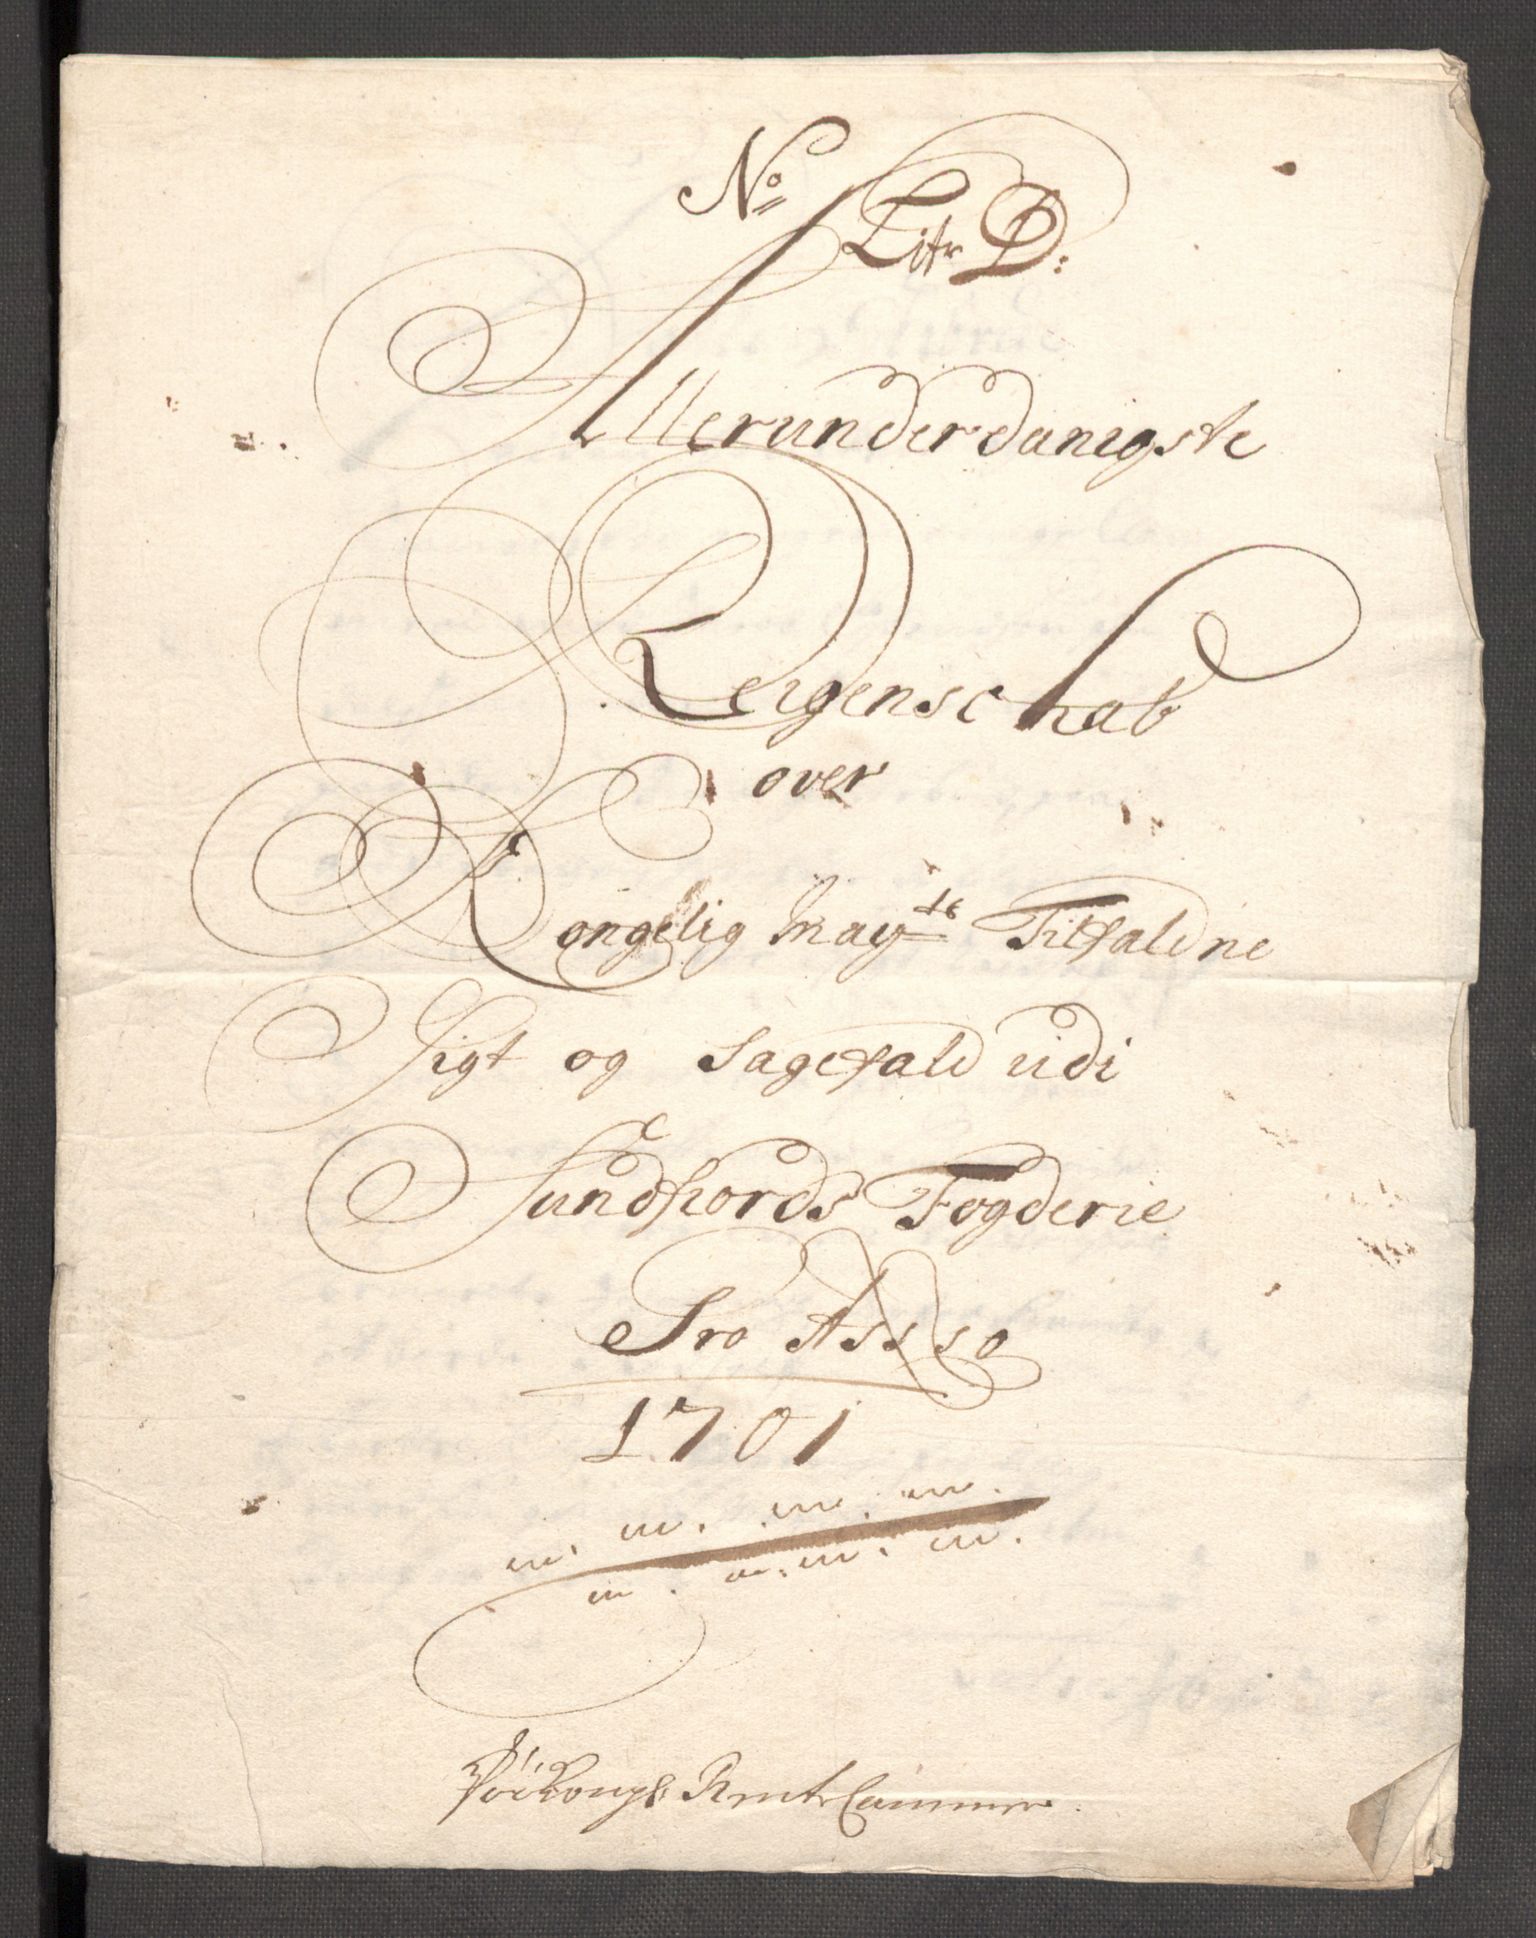 No
Litr D:
Allerunderdanigste
Reigenschab
over
Kongelig Mayts Tilfaldne
Sigt og Sagefald udi
Sundfiords Fogderie
Pro Ao
1701
Rente Cammer.